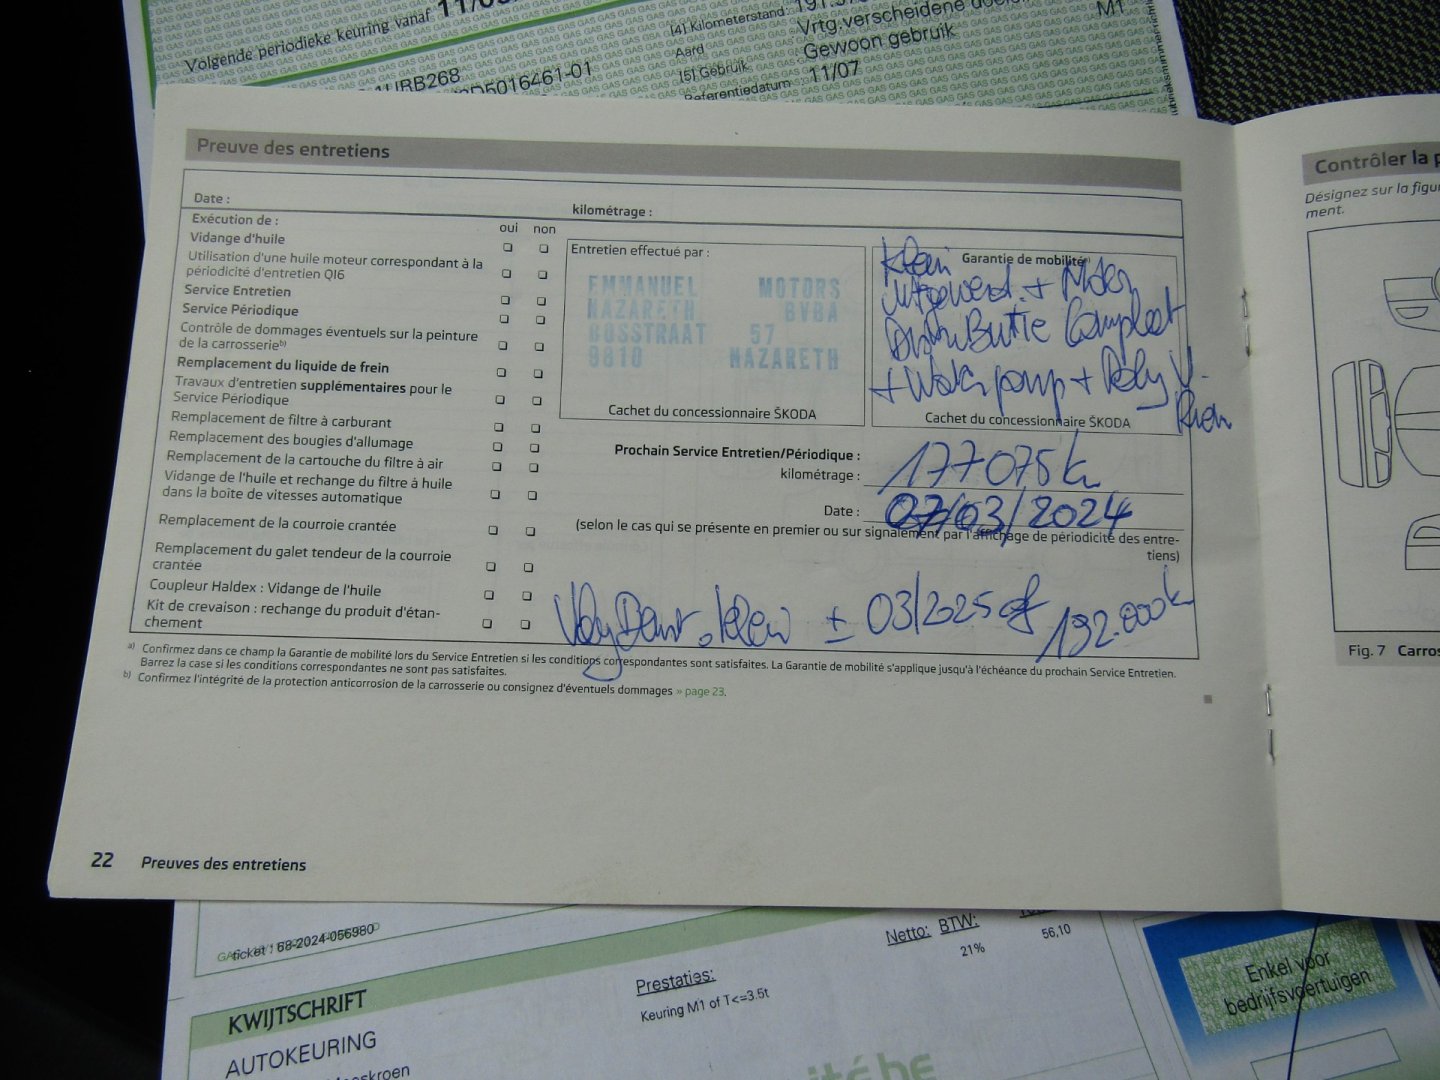 Volgende periodieke keuring vanaf 11/0
[4] Kilometerstand
Aard
Vrtg.verscheidene
M1
[5] Gebruik
Gewoon gebruik
Referentiedatum 11/07
URB268
D5016461-01
Preuve des entretiens
Date :
kilométrage :
Exécution de :
oui non
Vidange d'huile
Utilisation d'une huile moteur correspondant à la
périodicité d'entretien QI6
Service Entretien
Service Périodique
Contrôle de dommages éventuels sur la peinture
de la carrosserieb)
Remplacement du liquide de frein
Travaux d'entretien supplémentaires pour le
Service Périodique
Remplacement de filtre à carburant
Remplacement des bougies d'allumage
Remplacement de la cartouche du filtre à air
Vidange de l'huile et rechange du filtre à huile
dans la boîte de vitesses automatique
Remplacement de la courroie crantée
Remplacement du galet tendeur de la courroie
crantée
Coupleur Haldex : Vidange de l'huile
Kit de crevaison : rechange du produit d'étan-
chement
Entretien effectué par :
EMMANUEL MOTORS
NAZARETH BVBA
BOSSTRAAT 57
9810 NAZARETH
Cachet du concessionnaire ŠKODA
Garantie de mobilitéa)
Klein
uitgevoerd. +
Distributie Compleet
+ Waterpomp + Poly V.
Riem
Cachet du concessionnaire ŠKODA
Prochain Service Entretien/Périodique :
kilométrage : 177075 km
Date : 07/03/2024
(selon le cas qui se présente en premier ou sur signalement par l'affichage de périodicité des entre-
tiens)
Volg Beurt. klein ± 03/2025 of 192.000 km
a) Confirmez dans ce champ la Garantie de mobilité lors du Service Entretien si les conditions correspondantes sont satisfaites. La Garantie de mobilité s'applique jusqu'à l'échéance du prochain Service Entretien.
Barrez la case si les conditions correspondantes ne sont pas satisfaites.
b) Confirmez l'intégrité de la protection anticorrosion de la carrosserie ou consignez d'éventuels dommages » page 23.
22 Preuves des entretiens
Contrôler la
Désignez sur la figu
ment.
Fig. 7 Carros
ticket : 68-2024-056980
KWIJTSCHRIFT
AUTOKEURING
Prestaties:
Keuring M1 of T<=3.5t
Netto: BTW:
21% 56,10
Enkel voor
bedrijfsvoertuigen